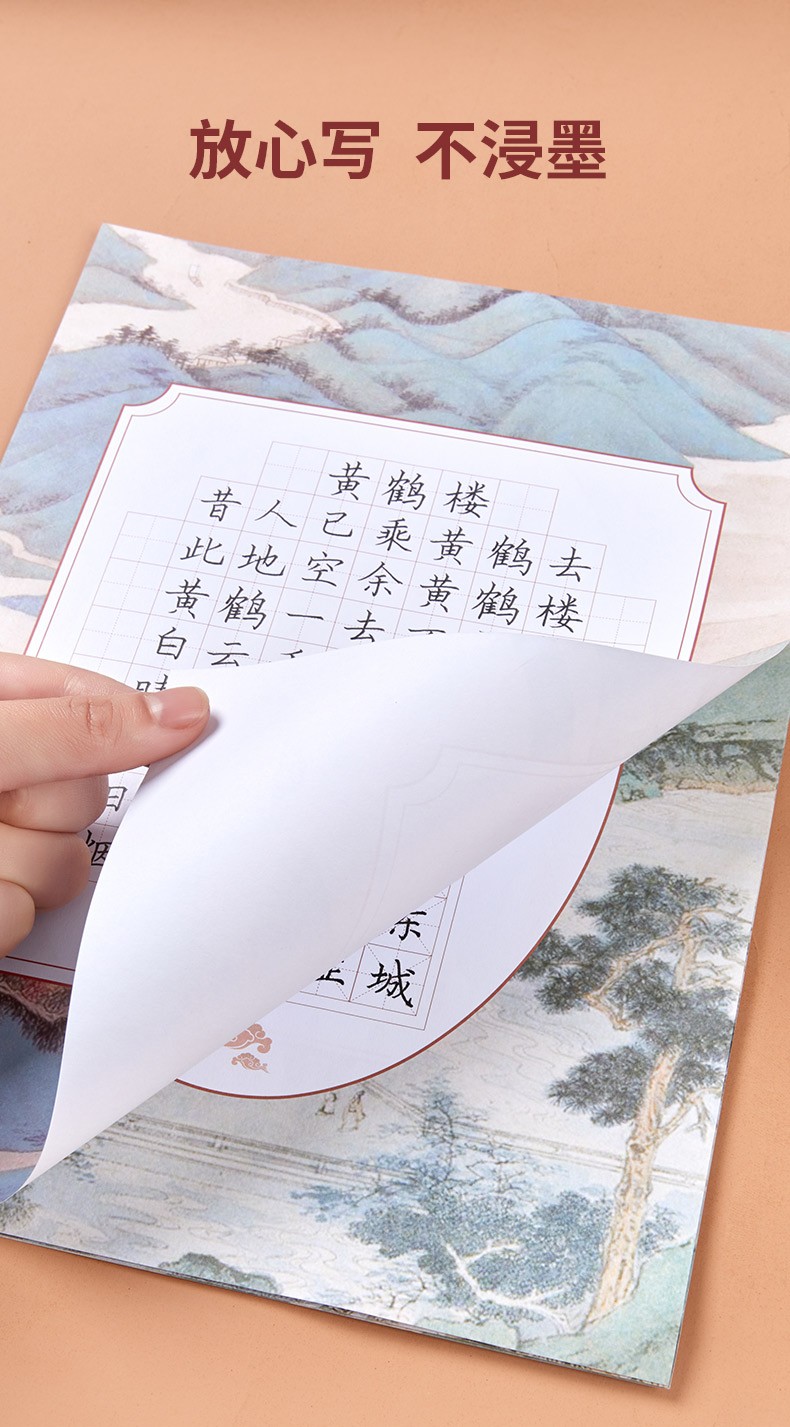 放心写 不浸墨
黄鹤楼
昔人已乘黄鹤去
此地空余黄鹤楼
黄鹤一去
白云
日
城